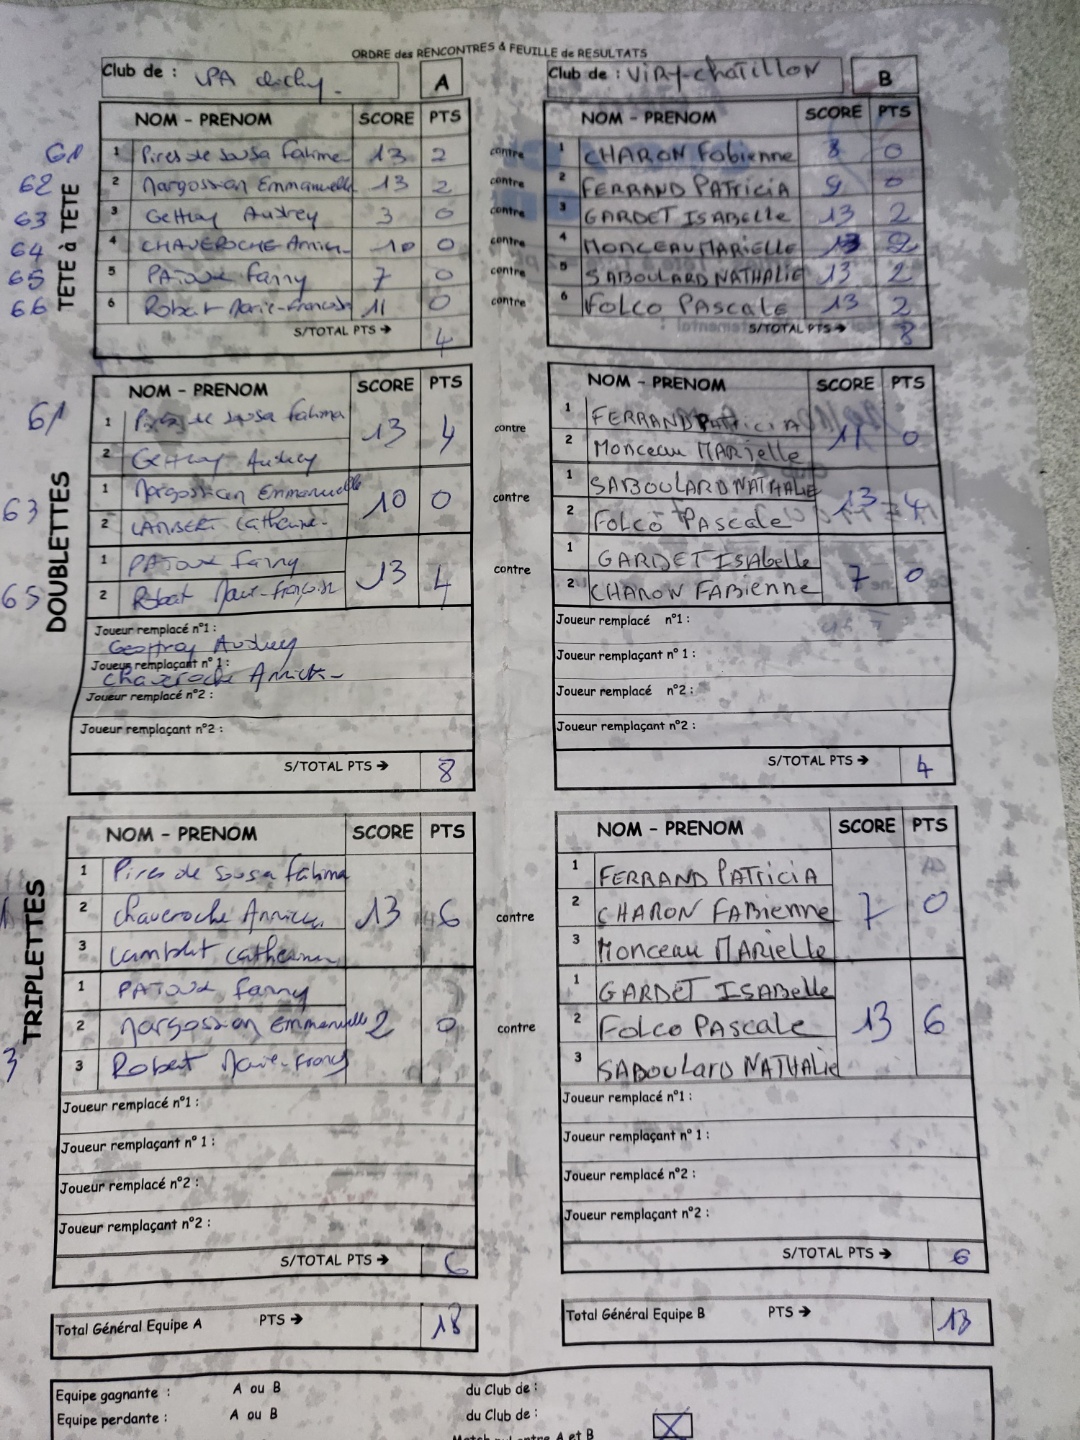 ORDRE des RENCONTRES & FEUILLE de RESULTATS
Club de : A
Club de : ViRY-chaTillON B
NOM - PRENOM SCORE PTS
NOM - PRENOM SCORE PTS
TETE à TETE
61 1 Pires de Sousa Fatima 13 2 contre 1 CHARON Fabienne 8 0
62 2 Nargossian Emmanuelle 13 2 contre 2 FERRAND PATRiciA 9 0
63 3 Audrey 3 0 contre 3 GARDET ISABelle 13 2
64 4 CHAVEROCHE Annick 10 0 contre 4 MONCEAU MARIELLE 13 2
65 5 PAToux fanny 7 0 contre 5 SABOULARD NATHALIE 13 2
66 6 Robert Marie-Francoise 11 0 contre 6 FOLCO PAScale 13 2
S/TOTAL PTS → 4
S/TOTAL PTS → 8
NOM - PRENOM SCORE PTS
NOM - PRENOM SCORE PTS
DOUBLETTES
61 1 Pires de Sousa Fatima 13 4 contre 1 FERRAND PATriciA 11 0
2 Geffroy Audrey 2 Monceau MARielle
63 1 Nargossian Emmanuelle 10 0 contre 1 SABOULARD NATHALIE 13 4
2 LAMBERT Catherine 2 FOLCO PAScale
65 1 PAToux Fanny 13 4 contre 1 GARDET ISAbelle 7 0
2 Robert Marie-Françoise 2 CHARON FABienne
Joueur remplacé n°1 :
Geoffroy Audrey
Joueur remplaçant n° 1 :
Chaveroche Annick
Joueur remplacé n°2 :
Joueur remplaçant n°2 :
S/TOTAL PTS → 8
Joueur remplacé n°1 :
Joueur remplaçant n° 1 :
Joueur remplacé n°2 :
Joueur remplaçant n°2 :
S/TOTAL PTS → 4
NOM - PRENOM SCORE PTS
NOM - PRENOM SCORE PTS
TRIPLETTES
1 Pires de Sousa Fatima 1 FERRAND PATRiciA
2 Chaveroche Annick 13 6 contre 2 CHARON FABienne 7 0
3 Lambert Catherine 3 Monceau MARielle
1 PAToux fanny 1 GARDET ISABelle
2 Nargossian Emmanuelle 2 0 contre 2 FOLCO PAScale 13 6
3 3 Robert Marie-Franç 3 SABOULARD NATHALIE
Joueur remplacé n°1 :
Joueur remplaçant n° 1 :
Joueur remplacé n°2 :
Joueur remplaçant n°2 :
S/TOTAL PTS → 6
Joueur remplacé n°1 :
Joueur remplaçant n° 1 :
Joueur remplacé n°2 :
Joueur remplaçant n°2 :
S/TOTAL PTS → 6
Total Général Equipe A PTS → 18
Total Général Equipe B PTS → 18
Equipe gagnante : A ou B du Club de :
Equipe perdante : A ou B du Club de :
Match nul entre A et B